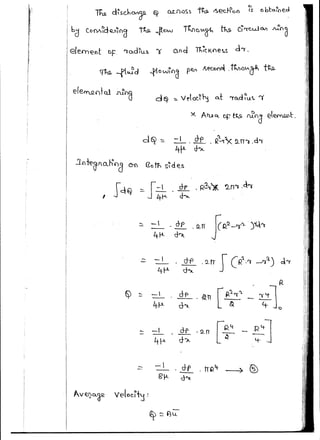 The discharge Q across the section is obtained
by considering the flow through the circular ring
element of radius r and thickness dr.
The fluid flowing per second through the
elemental ring
dQ = velocity at radius r
× Area of the ring element.
dQ = -1/4μ . dp/dx . R²r² × 2πr.dr
Integrating on Both sides
∫dQ = ∫ -1/4μ . dp/dx . R²r² × 2πr.dr
= -1/4μ . dp/dx . 2π ∫(R²-r²)r dr
= -1/4μ . dp/dx . 2π ∫(R².r - r³) dr
Q = -1/4μ . dp/dx . 2π [R²r²/2 - r⁴/4]₀ᴿ
= -1/4μ . dp/dx . 2π [R⁴/2 - R⁴/4]
= -1/8μ . dp/dx . πR⁴ → ⑤
Average Velocity:
Q = Aū